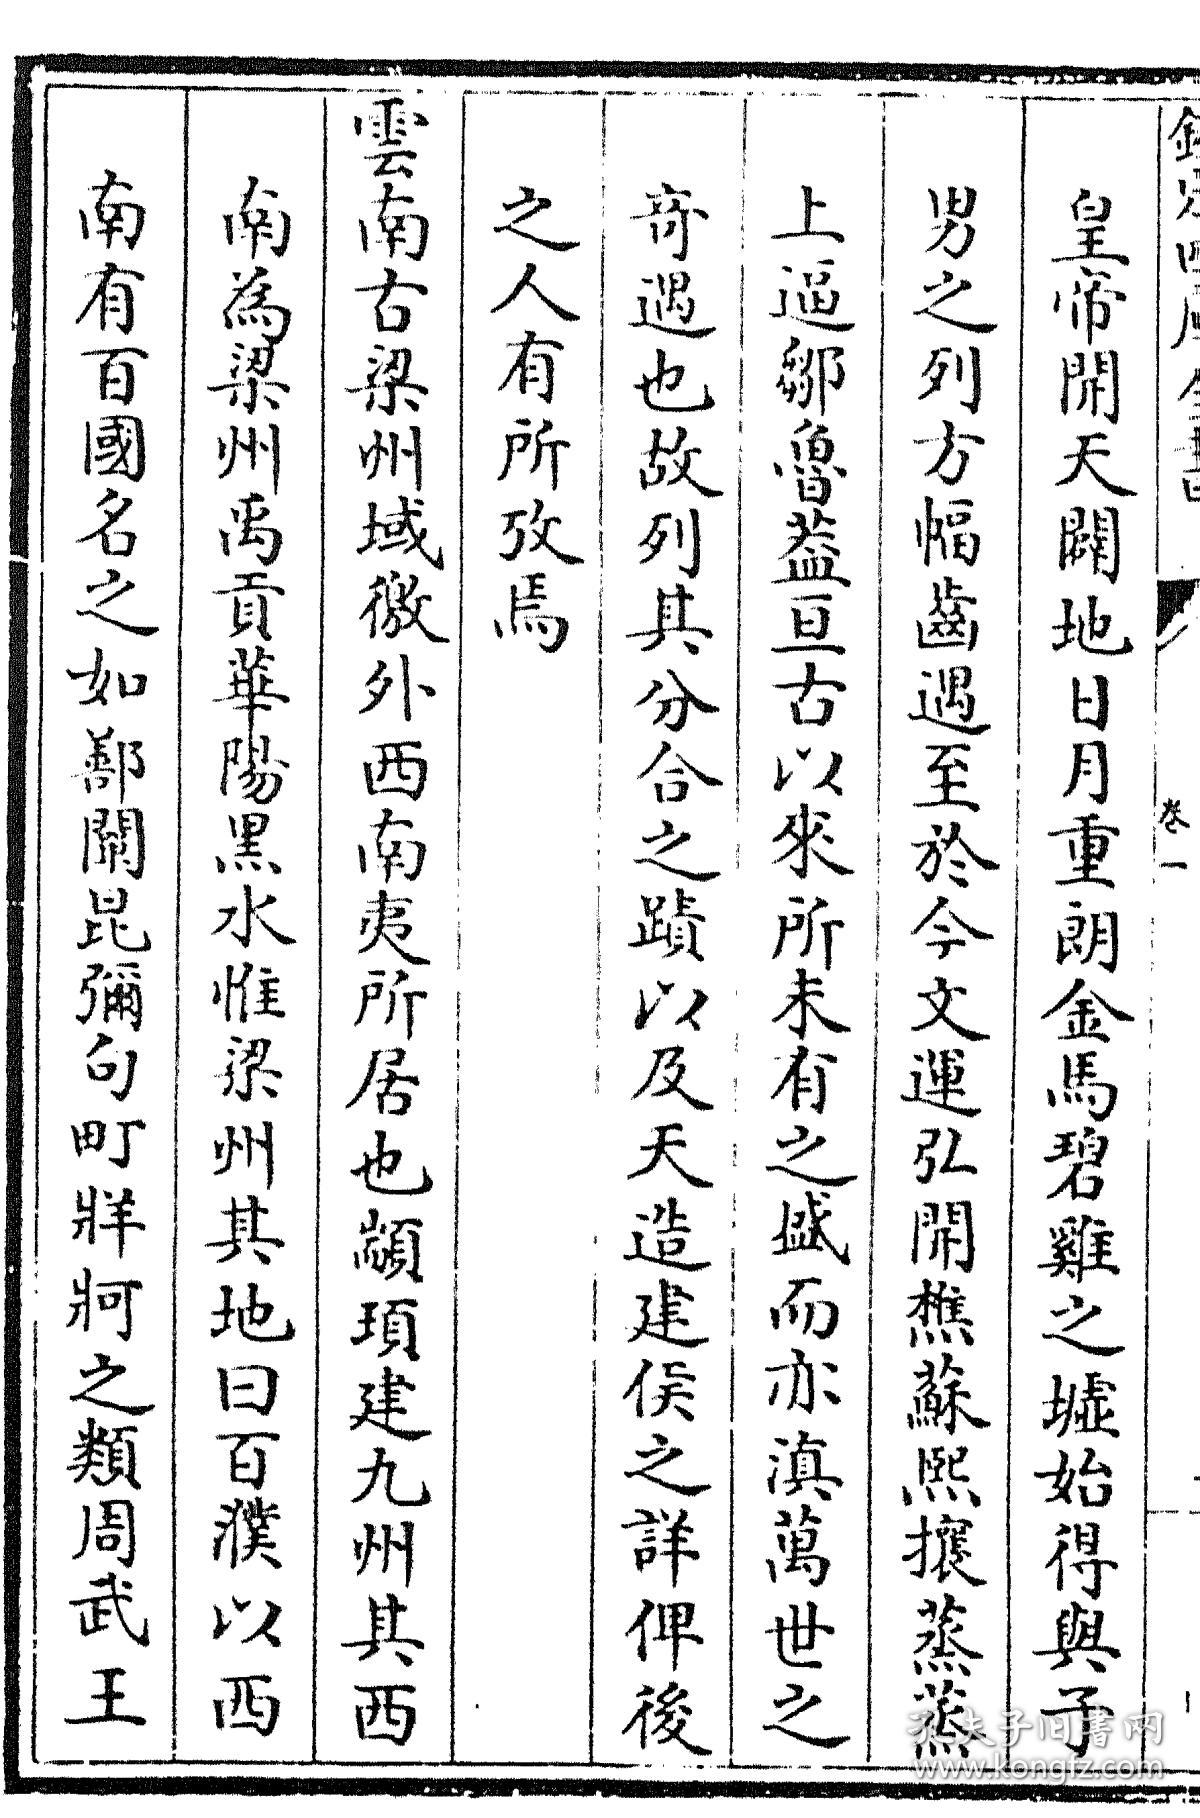 欽定四庫全書
卷一
皇帝開天闢地日月重朗金馬碧雞之墟始得與予
男之列方幅齒遇至於今文運弘開樵蘇熙攘蒸蒸
上逼鄒魯葢亘古以來所未有之盛而亦滇萬世之
竒遇也故列其分合之蹟以及天造建侯之詳俾後
之人有所攷焉
雲南古梁州域徼外西南夷所居也顓頊建九州其西
南為梁州禹貢華陽黑水惟梁州其地曰百濮以西
南有百國名之如鄯闡昆彌句町牂牁之類周武王
孔夫子旧書网
www.kongfz.com